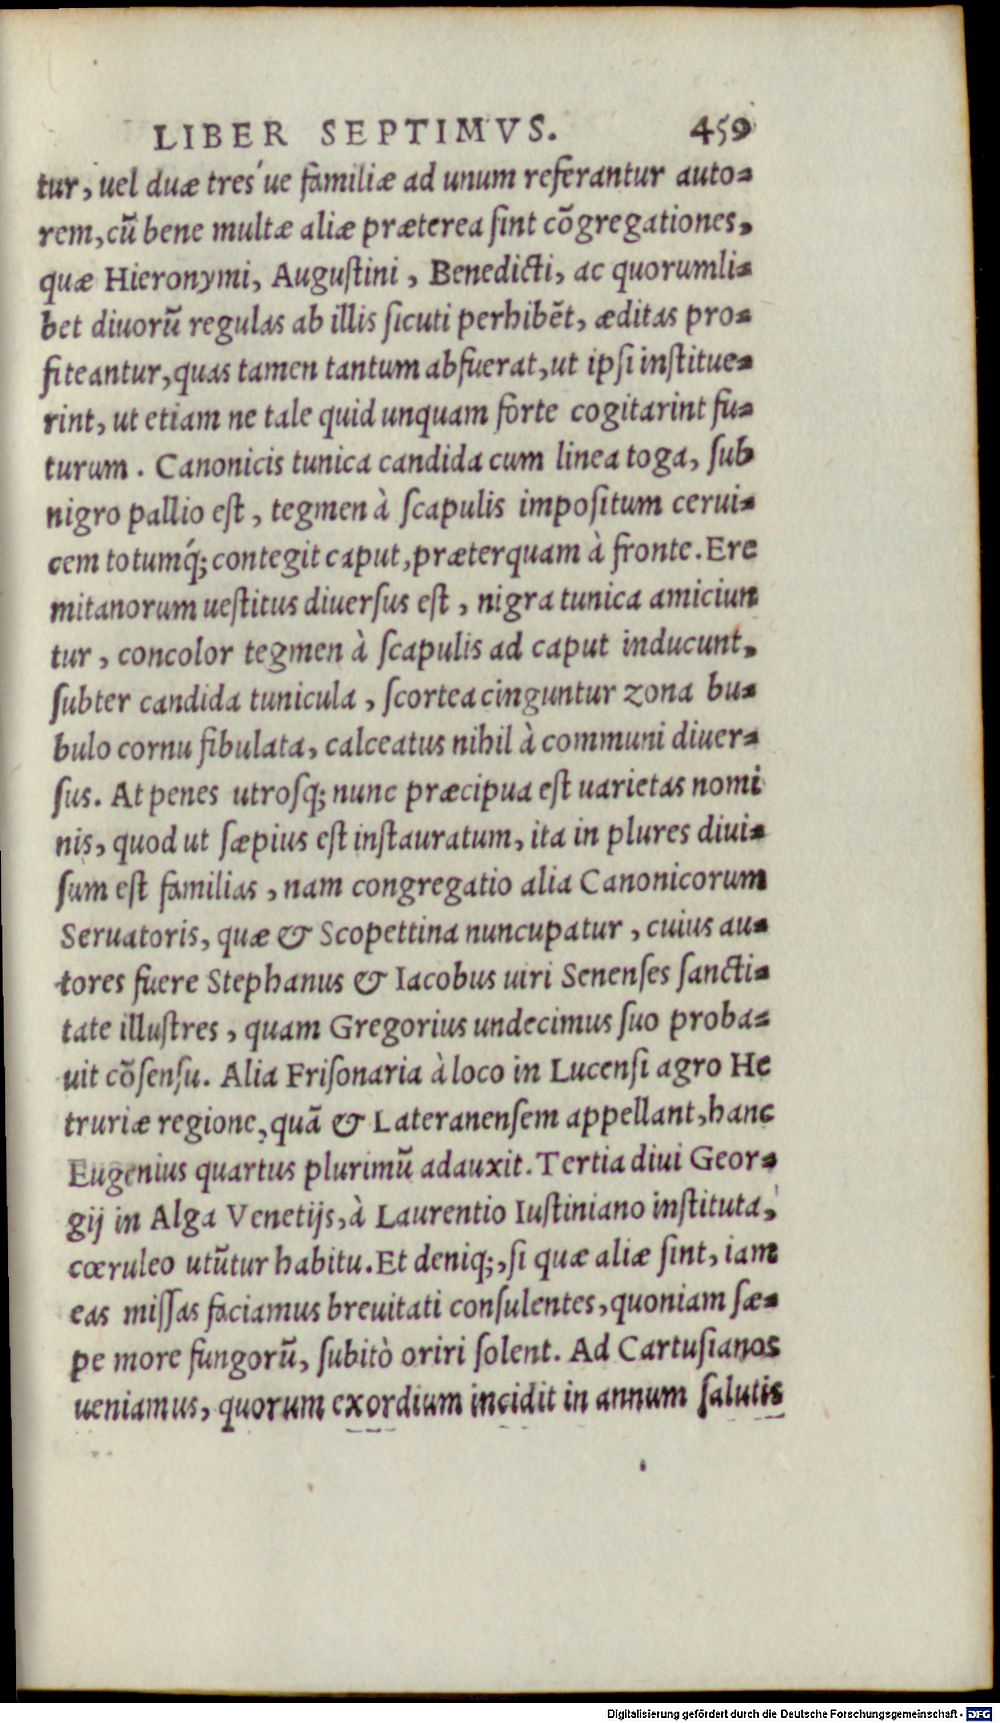 LIBER SEPTIMVS. 459
tur, uel duæ tres'ue familiæ ad unum referantur auto-
rem, cũ bene multæ aliæ præterea ſint cõgregationes,
quæ Hieronymi, Auguſtini, Benedicti, ac quorumli-
bet diuorũ regulas ab illis ſicuti perhibẽt, æditas pro-
fiteantur, quas tamen tantum abfuerat, ut ipſi inſtitue-
rint, ut etiam ne tale quid unquam forte cogitarint fu-
turum. Canonicis tunica candida cum linea toga, ſub
nigro pallio eſt, tegmen à ſcapulis impoſitum cerui-
cem totumq́; contegit caput, præterquam à fronte. Ere
mitanorum ueſtitus diuerſus eſt, nigra tunica amiciun
tur, concolor tegmen à ſcapulis ad caput inducunt,
ſubter candida tunicula, ſcortea cinguntur zona bu-
bulo cornu fibulata, calceatus nihil à communi diuer-
ſus. At penes utroſq; nunc præcipua eſt uarietas nomi
nis, quod ut ſæpius eſt inſtauratum, ita in plures diui-
ſum eſt familias, nam congregatio alia Canonicorum
Seruatoris, quæ & Scopettina nuncupatur, cuius au-
tores fuere Stephanus & Iacobus uiri Senenſes ſancti-
tate illuſtres, quam Gregorius undecimus ſuo proba-
uit cõſenſu. Alia Friſonaria à loco in Lucenſi agro He
truriæ regione, quã & Lateranenſem appellant, hanc
Eugenius quartus plurimũ adauxit. Tertia diui Geor-
gij in Alga Venetijs, à Laurentio Iuſtiniano inſtituta,
cœruleo utũtur habitu. Et deniq;, ſi quæ aliæ ſint, iam
eas miſſas faciamus breuitati conſulentes, quoniam ſæ-
pe more fungorũ, ſubitò oriri ſolent. Ad Cartuſianos
ueniamus, quorum exordium incidit in annum ſalutis
Digitalisierung gefördert durch die Deutsche Forschungsgemeinschaft - DFG